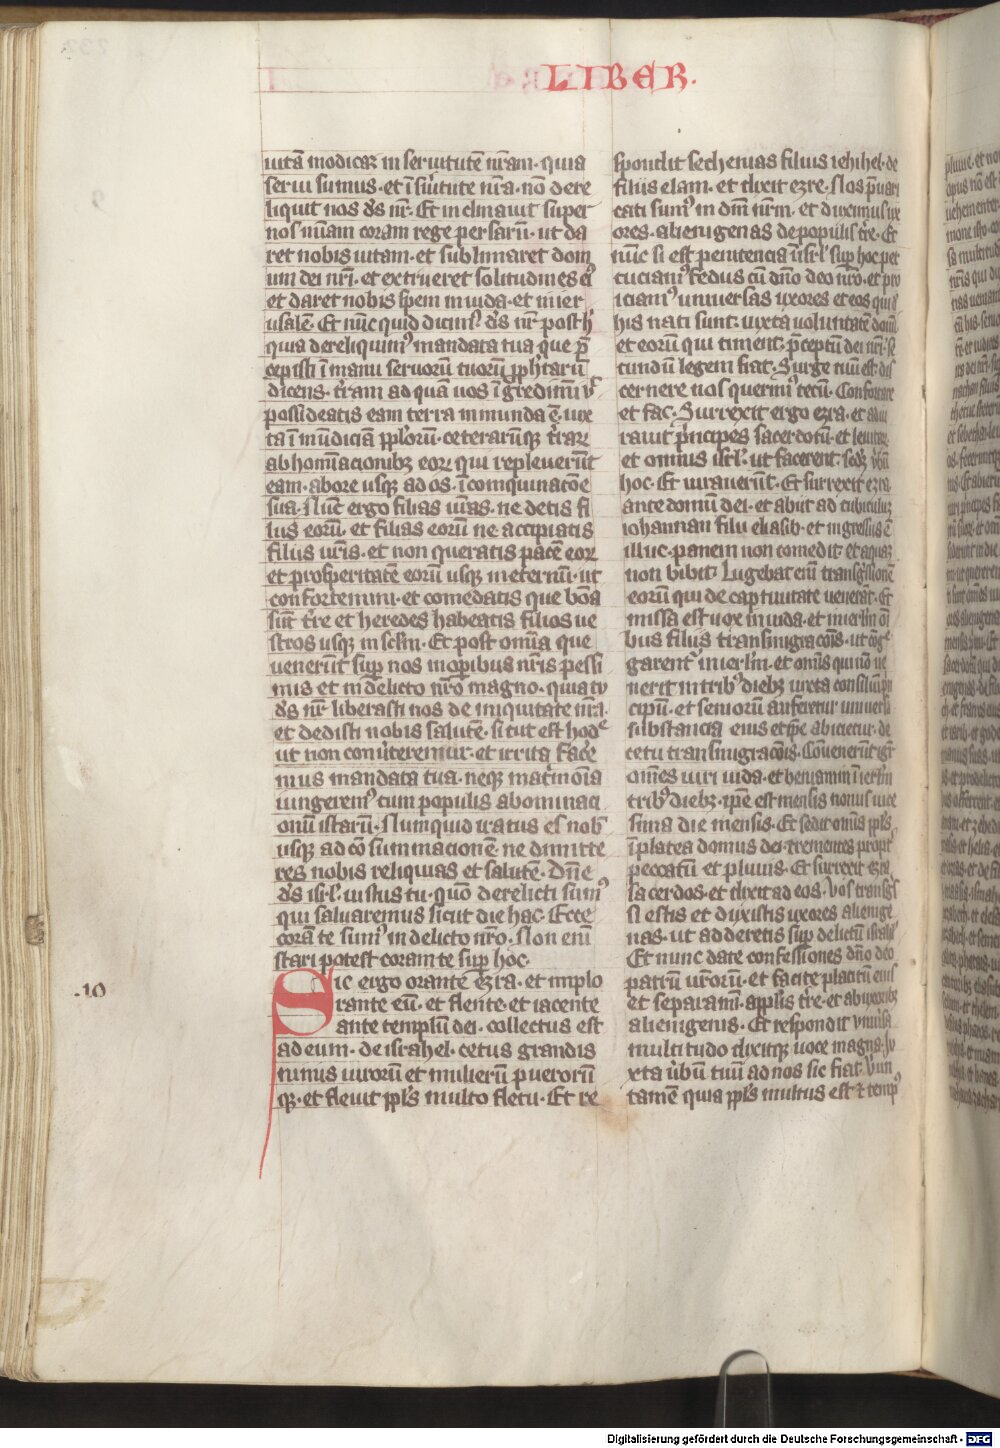 LIBER.
uitā modicaꝝ in seruitutē nr̄am· quia
serui sumus· et ī s̄uitute nr̄a· nō dere
liquit nos d̄s nr̄· Et inclinauit super
nos m̄iam coram rege persarū· ut da
ret nobis uitam· et sublimaret dom
um dei nr̄i· et extrueret solitudines eiꝰ
et daret nobis spem in iuda· et in ier
usalē· Et nūc quid dicimꝰ d̄s nr̄ post h̄
quia dereliquimꝰ mandata tua· que p̄
cepisti ī manu seruorū tuorū ꝓph̄tarū
dicens· t̄ram ad quā uos īgredimī vt̄
possideatis eam terra inmunda ē· iux
ta ī mūdiciā ppl̓orū· ceterarūqꝫ t̄raꝝ
abhominacionibꝫ eoꝝ qui repleuerūt
eam· abore usqꝫ ad os· ī coinquinacōe
sua· Nūc ergo filias ur̄as· ne detis fi
liis eorū· et filias eorū ne accipiatis
filiis ur̄is· et non queratis pacē eoꝝ
et prosperitatē eorū usqꝫ in eternū· ut
confortemini· et comedatis que bōa
sūt t̄re et heredes habeatis filios ue
stros usqꝫ in scl̄m· Et post om̄ia que
uenerūt suꝑ nos in oꝑibus nr̄is pessi
mis et in delicto nr̄o magno· quia tu
d̄s nr̄ liberasti nos de iniquitate nr̄a
et dedisti nobis salutē· sicut est hodᵉ
ut non conu̓teremur· et irrita face
mus mandata tua· neqꝫ mat̓mōia
iungeremꝰ cum populis abominaci
onū istarū· Numquid iratus es nobꝰ
usqꝫ ad cōsummacionē· ne dimitte
res nobis reliquias et salutē· Dn̄e
d̄s isr̄l· iustus tu· quō derelicti sumꝰ
qui saluaremus sicut die hac· Ecce
corā te sumꝰ in delicto nr̄o· Non enī
stari potest coram te suꝑ hoc·
·10
Sic ergo orante ezra· et implo
rante eū· et flente· et iacente
ante templū dei· collectus est
ad eum· de israhel· cetus grandis
nimis uirorū et mulierū puerorū
qꝫ· et fleuit ppl̓s multo fletu· Et re
spondit sechenias filius iehihel· de
filiis elam· et dixit ezre· Nos p̄uari
cati sumꝰ in dm̄ nr̄m· et duximus ux
ores· alienigenas de populis t̄re· Et
nūc si est penitencia ī isr̄l· suꝑ hoc per
cuciamꝰ fedus cū dn̄o deo nr̄o· et pro
iciamꝰ uniuersas uxores et eos qui d̄
his nati sunt· iuxta uoluntatē domī
et eorū qui timent· p̄ceptū dei nr̄i· se
cundū legem fiat· Surge tuū est dis
cernere nos querimꝰ tecū· Confortare
et fac· Surrexit ergo ezra· et adiu
rauit p̓ncipes sacerdotū· et leuitaꝝ
et omnis isr̄l· ut facerent secd̄ꝫ v̓bū
hoc· Et iurauerūt· Et surrexit ezra
ante domū dei· et abiit ad cubiculū
iohannan filii eliasib· et ingressus ē
illuc· panem non comedit et aquā
non bibit· Lugebat enī transg̓ssionē
eorū qui de captiuitate uenerāt· Et
missa est uox in iuda· et in ierl̄m ōi
bus filiis transmigracōis· ut ōg̓e
garent̓ in ierl̄m· et om̄is qui nō ue
nerit in tribꝰ diebꝫ iuxta consiliū p̓n
cipū· et seniorū auferetur uniuersa
substancia eius et ip̄e abicietur· de
cetu transmigracōis· Cōuenerūt igr̓
om̄es uiri iuda· et beniamin ī ierl̄m
tribꝰ diebꝫ· ip̄e est mensis nonus uice
sima die mensis· Et sedit om̄is ppl̓s
ī platea domus dei· trementes propt̓
peccatū et pluuiis· Et surrexit ezra
sacerdos· et dixit ad eos· Vos transg̓s
si estis et duxistis uxores alienige
nas· ut adderetis suꝑ delictū israhl̓
Et nunc date confessiones dn̄o deo
patrū ur̄orū· et facite placitū eius
et separamī· a ppl̓is t̄re· et ab uxoribꝫ
alienigenis· Et respondit vniu̓sa
multitudo dixitqꝫ uoce magna· Iu
xta u̓bū tuū ad nos sic fiat· V̓um
tamē quia ppl̓s multus est ⁊ tempꝰ
Digitalisierung gefördert durch die Deutsche Forschungsgemeinschaft - DFG